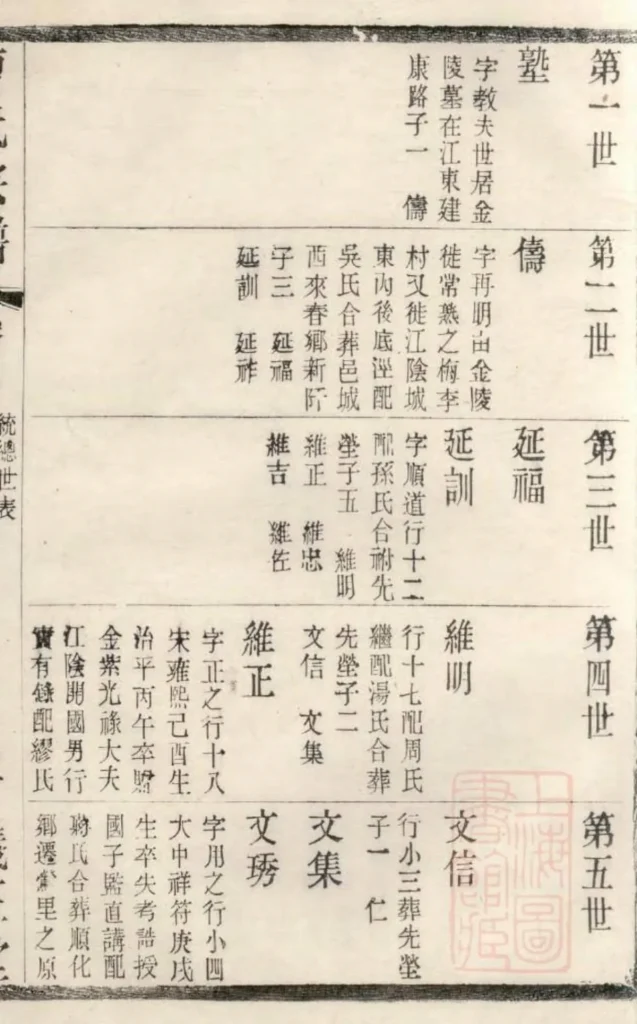 第一世
塾
字敎夫世居金
陵墓在江東建
康路子一 儔
第二世
儔
字再明由金陵
徙常熟之梅李
村又徙江陰城
東內後底涇配
吳氏合葬邑城
西來春鄉新阡
子三 延福
延訓 延祚
第三世
延福
延訓
字順道行十二
配孫氏合祔先
塋子五 維明
維正 維忠
維吉 維佐
第四世
維明
行十七配周氏
繼配湯氏合葬
先塋子二
文信 文集
維正
字正之行十八
宋雍熙己酉生
治平丙午卒贈
金紫光祿大夫
江陰開國男行
實有錄配繆氏
第五世
文信
行小三葬先塋
子一 仁
文集
文琇
字用之行小四
大中祥符庚戌
生卒失考誥授
國子監直講配
蔣氏合葬順化
鄉遷黨里之原
統總世表
上海圖
書館藏